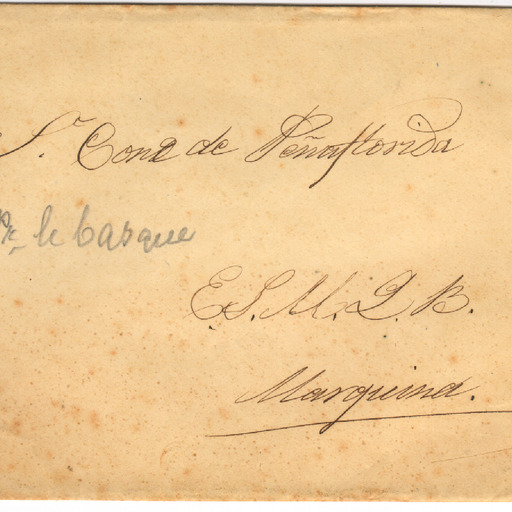 Sr Conde de Peñaflorida
le basque
E.S.M.L.B.
Marquina.